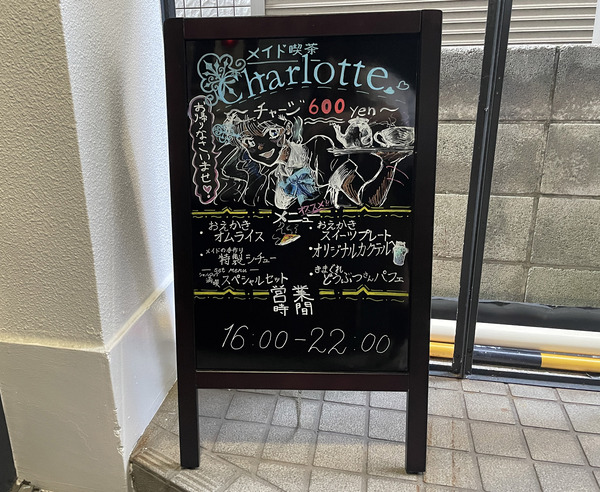 メイド喫茶
Charlotte.
〜チャージ 600 yen〜
おかえりなさいませ♡
メニュー
・おえかき
オムライス
・メイドの手作り
特製シチュー
— set menu —
スペシャルセット
・おえかき
スイーツプレート
・オリジナルカクテル
・きまぐれ
どうぶつさんパフェ
営業
時間
16:00-22:00